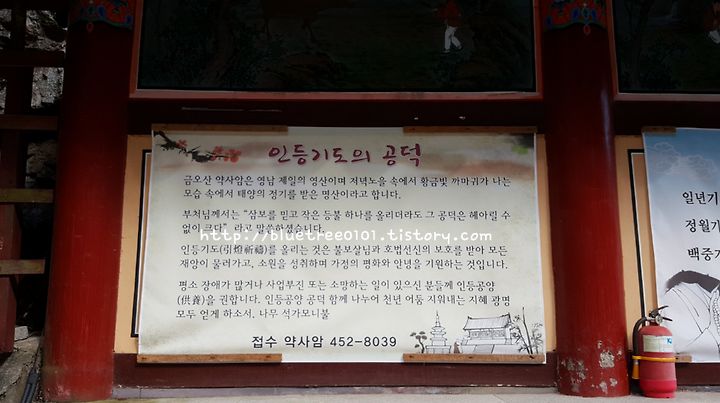 인등기도의 공덕
금오산 약사암은 영남 제일의 영산이며 저녁노을 속에서 황금빛 까마귀가 나는
모습 속에서 태양의 정기를 받은 명산이라고 합니다.
부처님께서는 "삼보를 믿고 작은 등불 하나를 올리더라도 그 공덕은 헤아릴 수
없이 크다" 라고 말씀하셨습니다.
http://bluetree0101.tistory.com
인등기도(引燈祈禱)를 올리는 것은 불보살님과 호법선신의 보호를 받아 모든
재앙이 물러가고, 소원을 성취하며 가정의 평화와 안녕을 기원하는 것입니다.
평소 장애가 많거나 사업부진 또는 소망하는 일이 있으신 분들께 인등공양
(供養)을 권합니다. 인등공양 공덕 함께 나누어 천년 어둠 지워내는 지혜 광명
모두 얻게 하소서. 나무 석가모니불
접수 약사암 452-8039
일년기
정월기
백중기